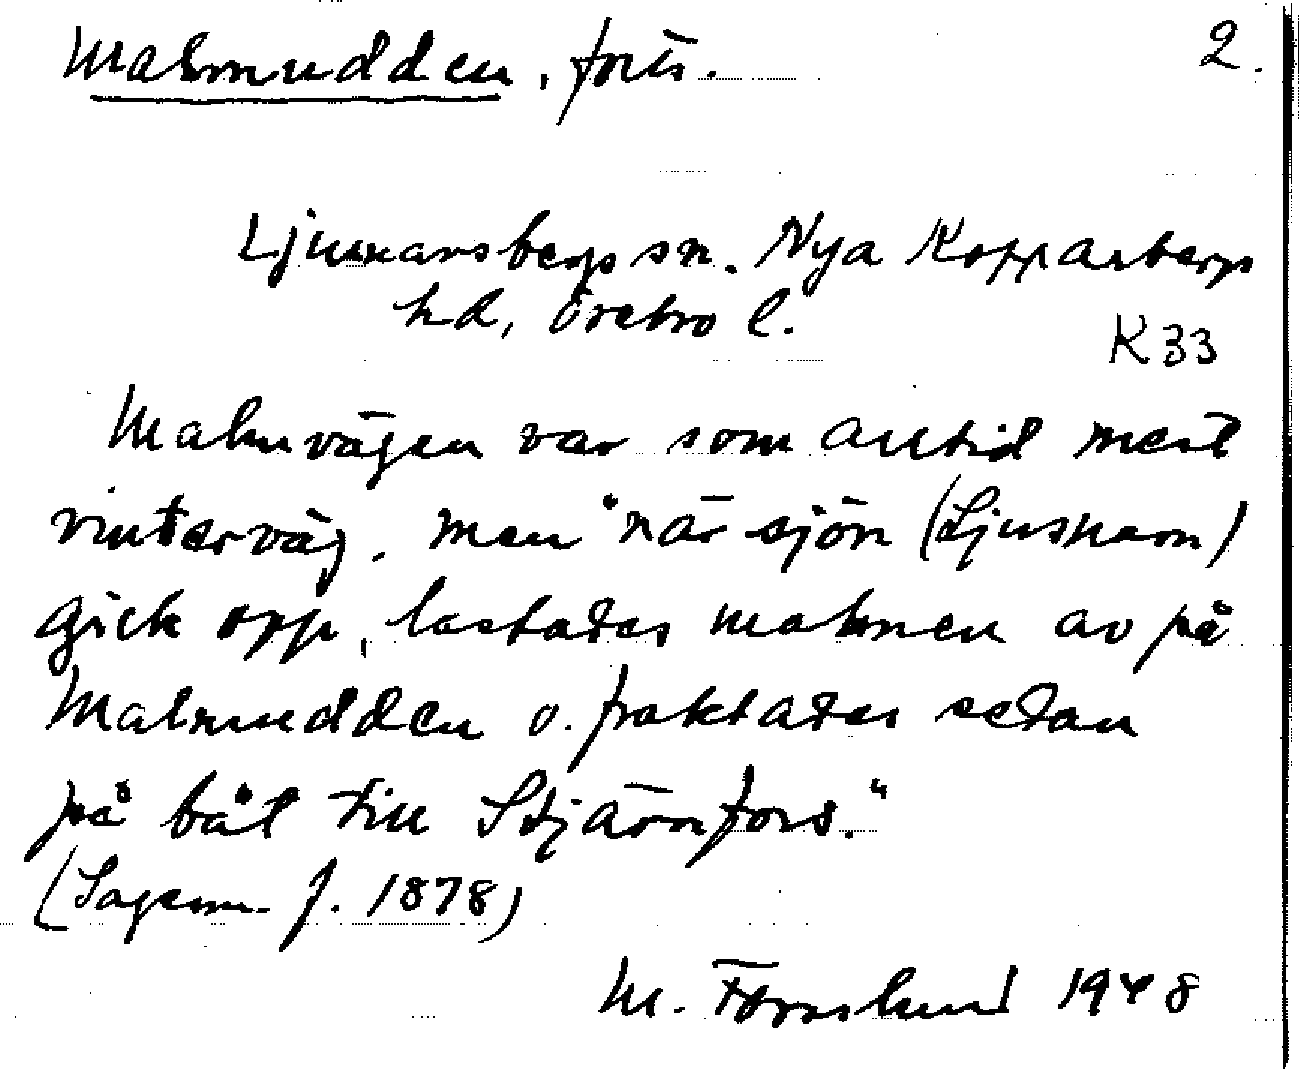 Malmudden, forts. 2.
Ljusnarsbergs sn. Nya Kopparbergs
hd, Örebro l.
K 33
Malmvägen var som alltid mest
vinterväg. Men "när sjön (Ljusnaren)
gick opp, lastades malmen av på
Malmudden o. fraktades sedan
på båt till Stjärnfors."
(Sagesm. f. 1878)
M. Forslund 1948